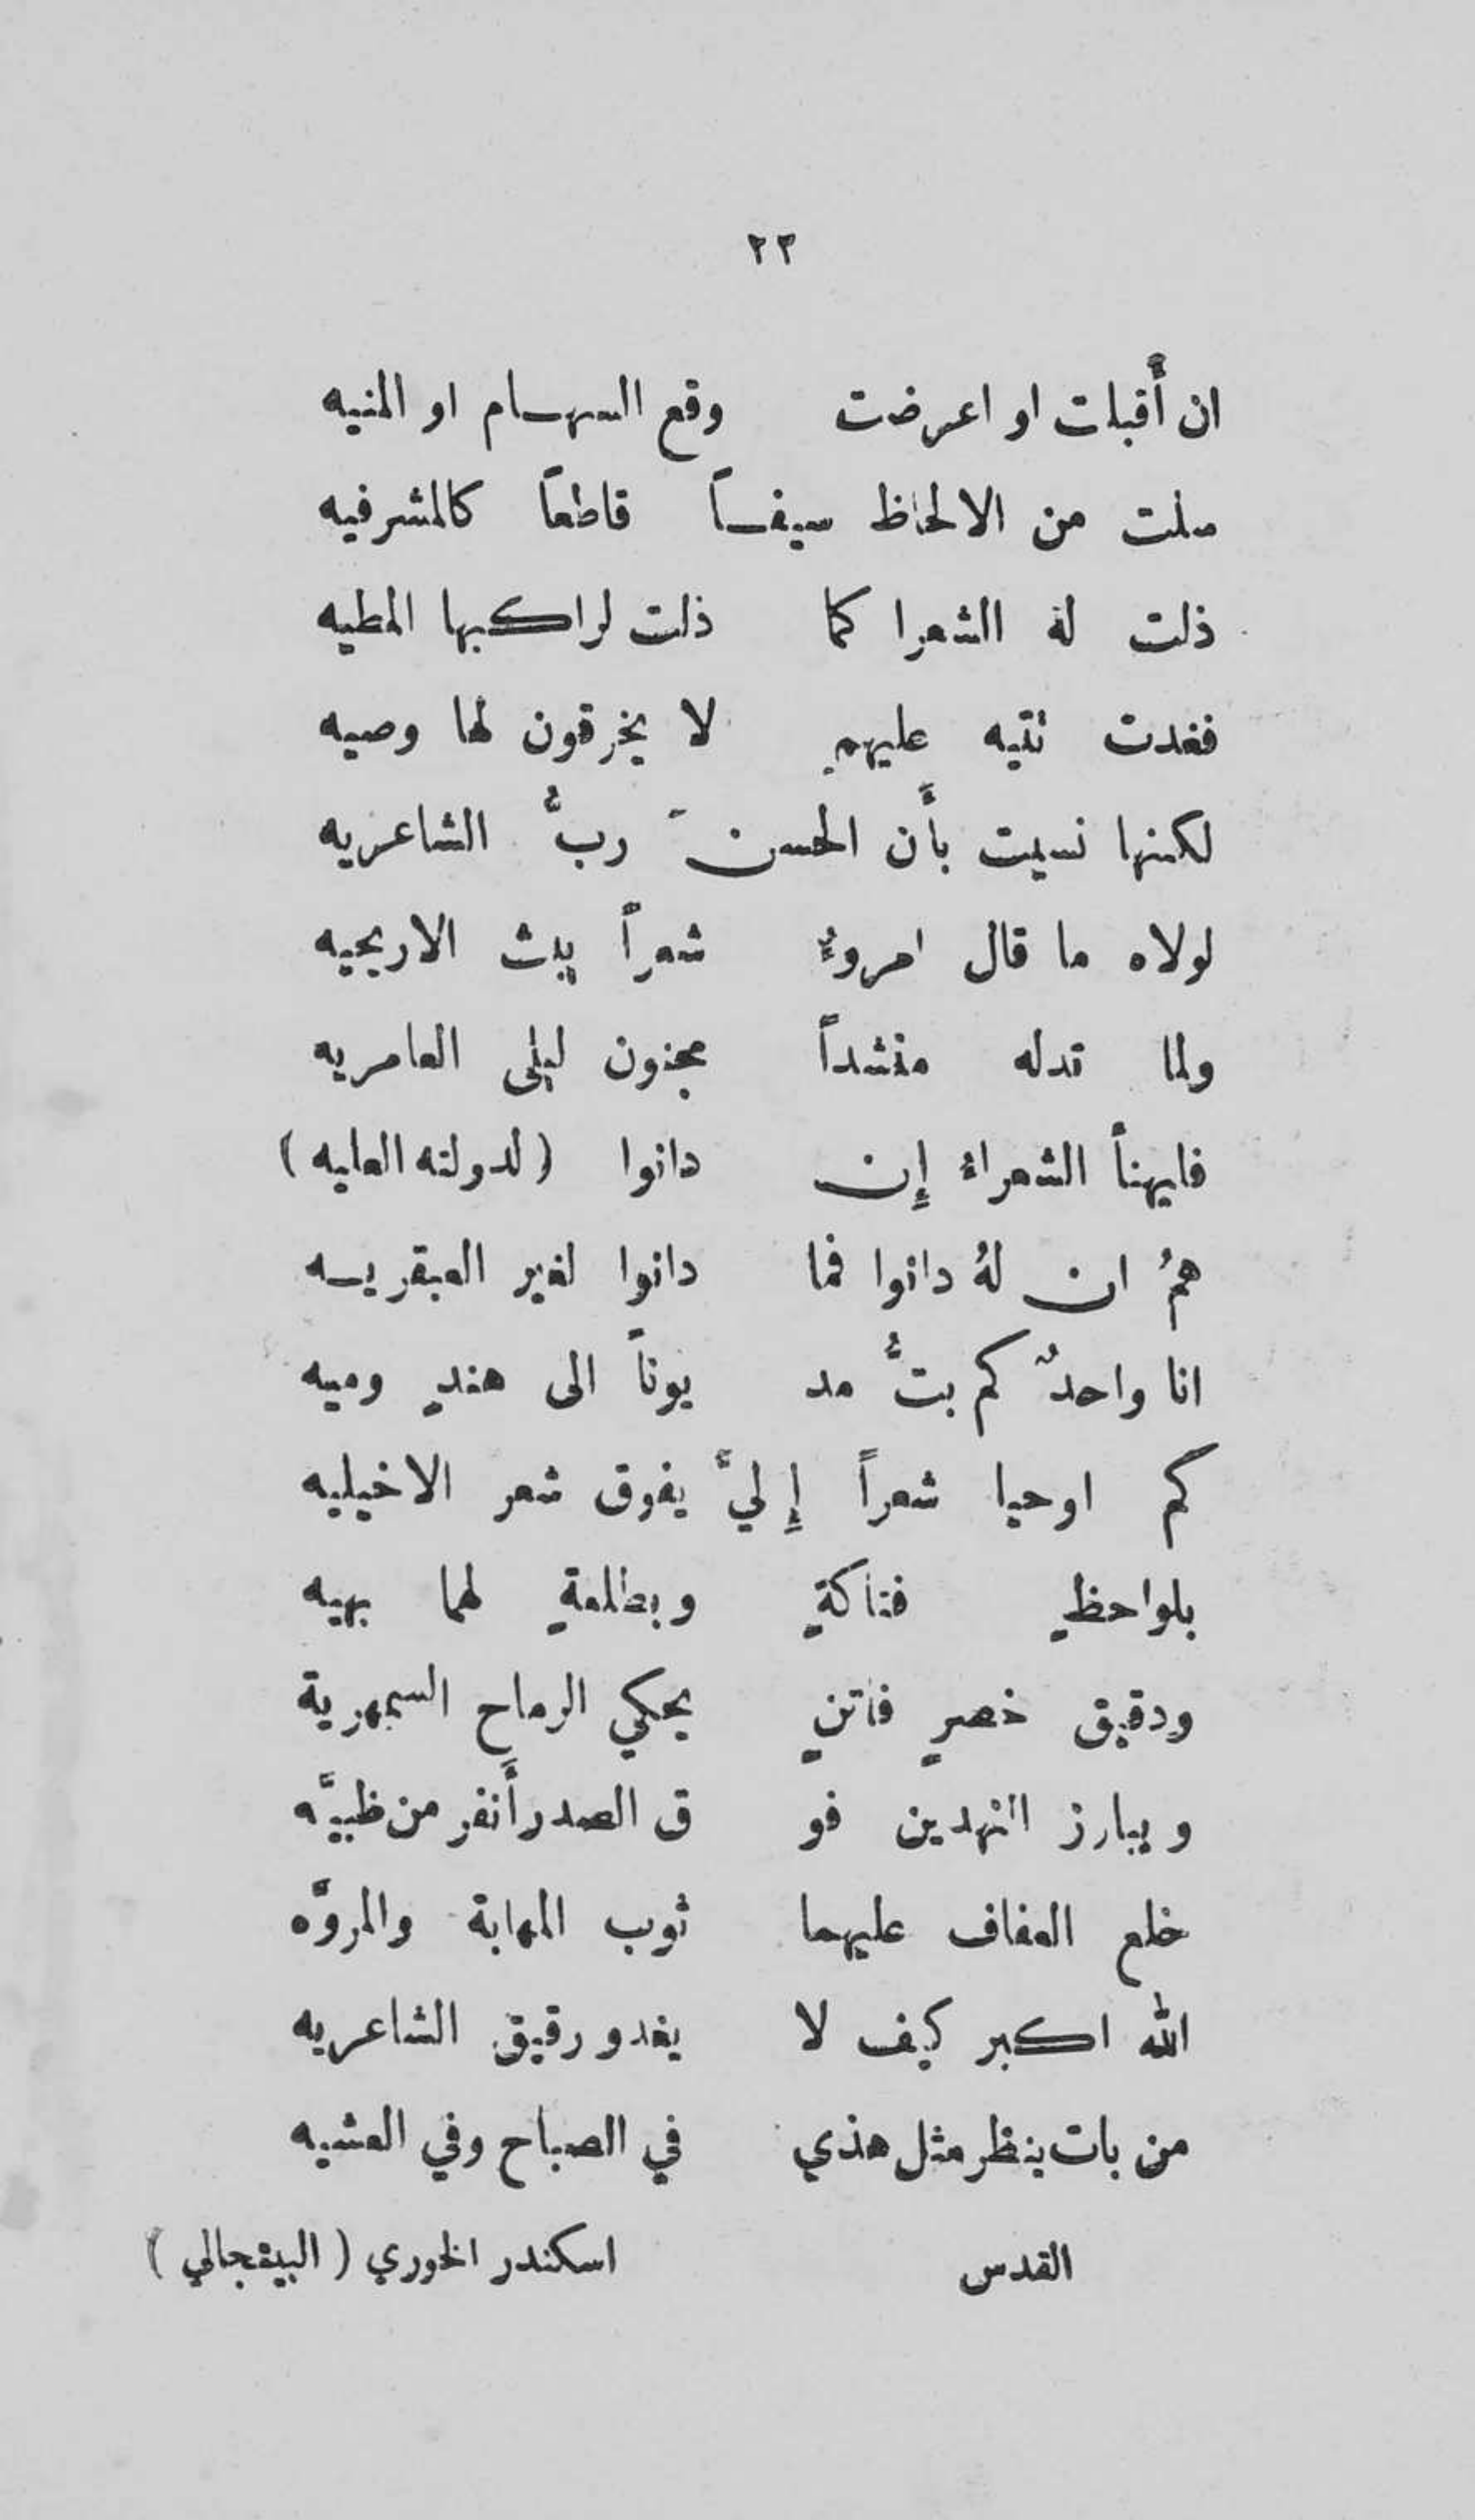 ٢٣
ان أَقبلت او اعرضت وقع السهام او المنيه
سلت من الالحاظ سيفاً قاطعاً كالمشرفيه
ذلت لهُ الشعرا كما ذلت لراكبها المطيه
فغدت تتيه عليهمِ لا يخرقون لها وصيه
لكنها نسيت بأَن الحسنَ ربُّ الشاعريه
لولاه ما قال امروءٌ شعراً يبث الاريحيه
ولما تدله منشداً مجنون ليلى العامريه
فليهنأ الشعراءُ إِن دانوا (لدولته العليه)
همُ ان لهُ دانوا فما دانوا لغير العبقريه
انا واحدٌ كم بتُّ مد يوناً الى هندٍ وميه
كم اوحيا شعراً إِليَّ يفوق شعر الاخيليه
بلواحظٍ فتاكةٍ وبطلعةٍ لهما بهيه
ودقيق خصرٍ فاتنٍ يحكي الرماح السمهرية
وببارز النهدين فو ق الصدر أَنفر من ظبيَّه
خلع العفاف عليهما ثوب المهابة والمروَّه
الله اكبر كيف لا يغدو رقيق الشاعريه
من بات ينظر مثل هذي في الصباح وفي العشيه
القدس اسكندر الخوري (البيتجالي)